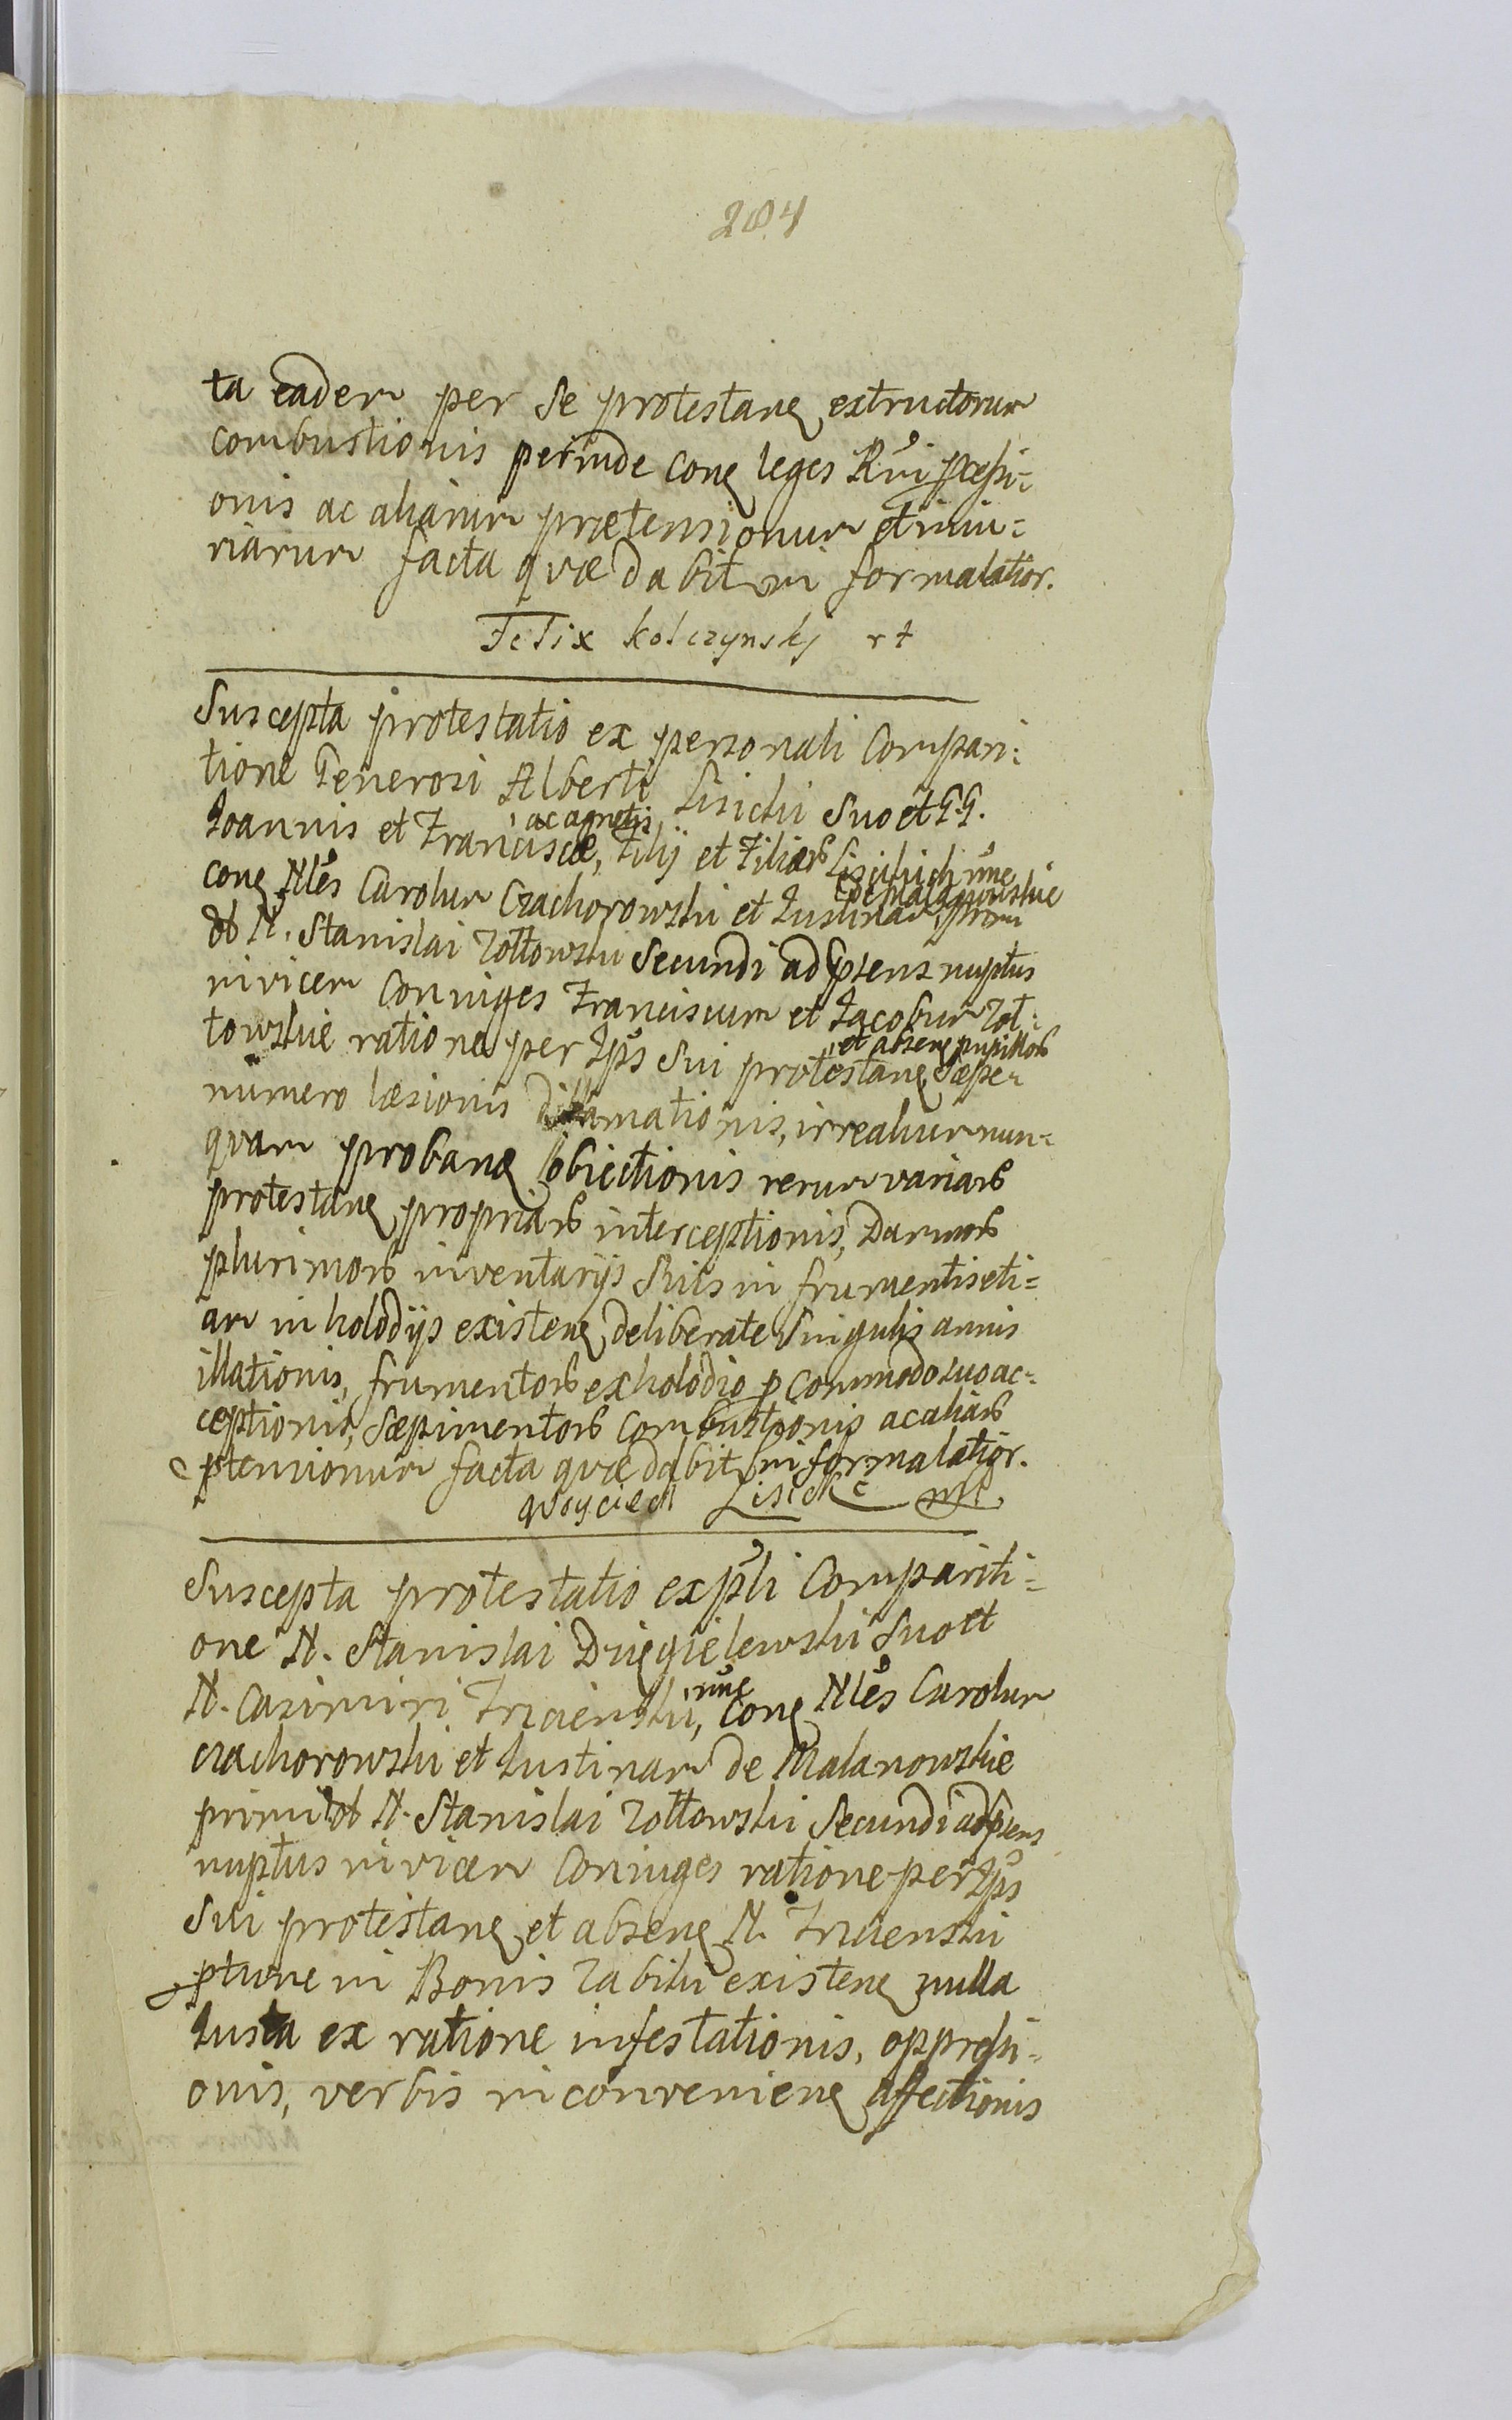 204
ta eadem per se protestanꝫ extructorum
combustionis perinde conꝫ leges Rni pcessi=
onis ac aliarum prætensionum et iniu=
riarum facta quæ dabitur in formalatior.
Felix Kolczynskj rt
Suscepta protestatio ex personali Compari:
tione Generosi Alberti Lisicki Suo et G.G.
Joannis et Franciscæ, ac agnetis Filij et Filiarꝝ Lisickich nne
conꝫ Nles Carolum Czachorowski et Justinam de Malanowskie primi
ob N. Stanislai Zołtowski Secundi ad pñens nuptus
invicem Coniuges Franciscum et Jacobum Zoł:
towskie ratione per Ipss Sui protestanꝫ et absenꝫ pupillorꝝ sæpe=
numero læsionis diffamationis, irrealium nun=
quam probanꝫ obiectionis rerum variarꝝ
protestanꝫ propriarꝝ interceptionis, Damnorꝝ
plurimorꝝ inventarijs Suis in frumentis eti=
am in holodijs existenꝫ deliberate Singulis annis
illationis, frumentorꝝ ex holodio p Commodo suo ac=
ceptionis, Sæpimentorꝝ Combustionis ac aliarꝝ
ptensionum facta quæ dabitur in formalatior.
Woyciech Lisicki mp
Suscepta protestatio ex psli Compariti=
one N. Stanislai Dzięgielewski Suo et
N. Casimiri Trzcienski, nne conꝫ Nles Carolum
Czachorowski et Justinam de Malanowskie
primi ob N. Stanislai Zołtowski Secundi ad pñens
nuptus invicem Coniuges ratione per Ipss
Sui protestanꝫ et absenꝫ N. Trzcienski
ptunc in Bonis Zabiki existenꝫ nulla
Justa ex ratione infestationis, oppressi=
onis, verbis inconvenienꝫ affectionis